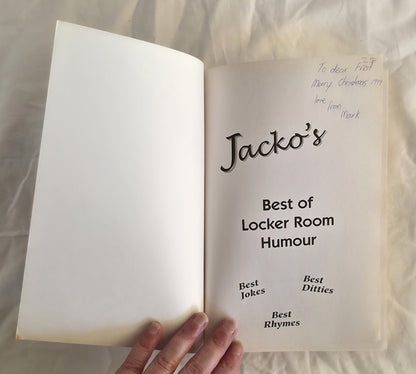 To dear Fred
Merry Christmas
love from
Mark
Jacko's
Best of
Locker Room
Humour
Best
Jokes
Best
Ditties
Best
Rhymes